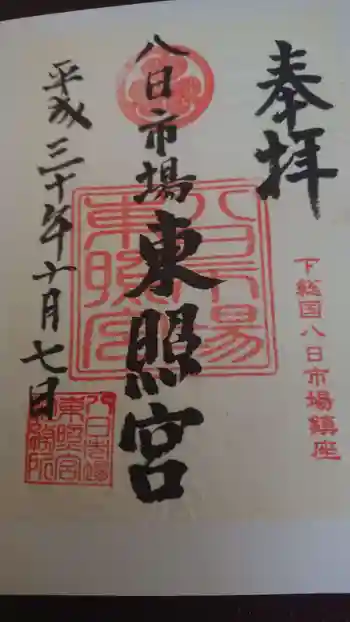 奉拝
下総国八日市場鎮座
八日市場東照宮
八日市場
東照宮
平成三十年十月七日
八日市場
東照宮
社務所